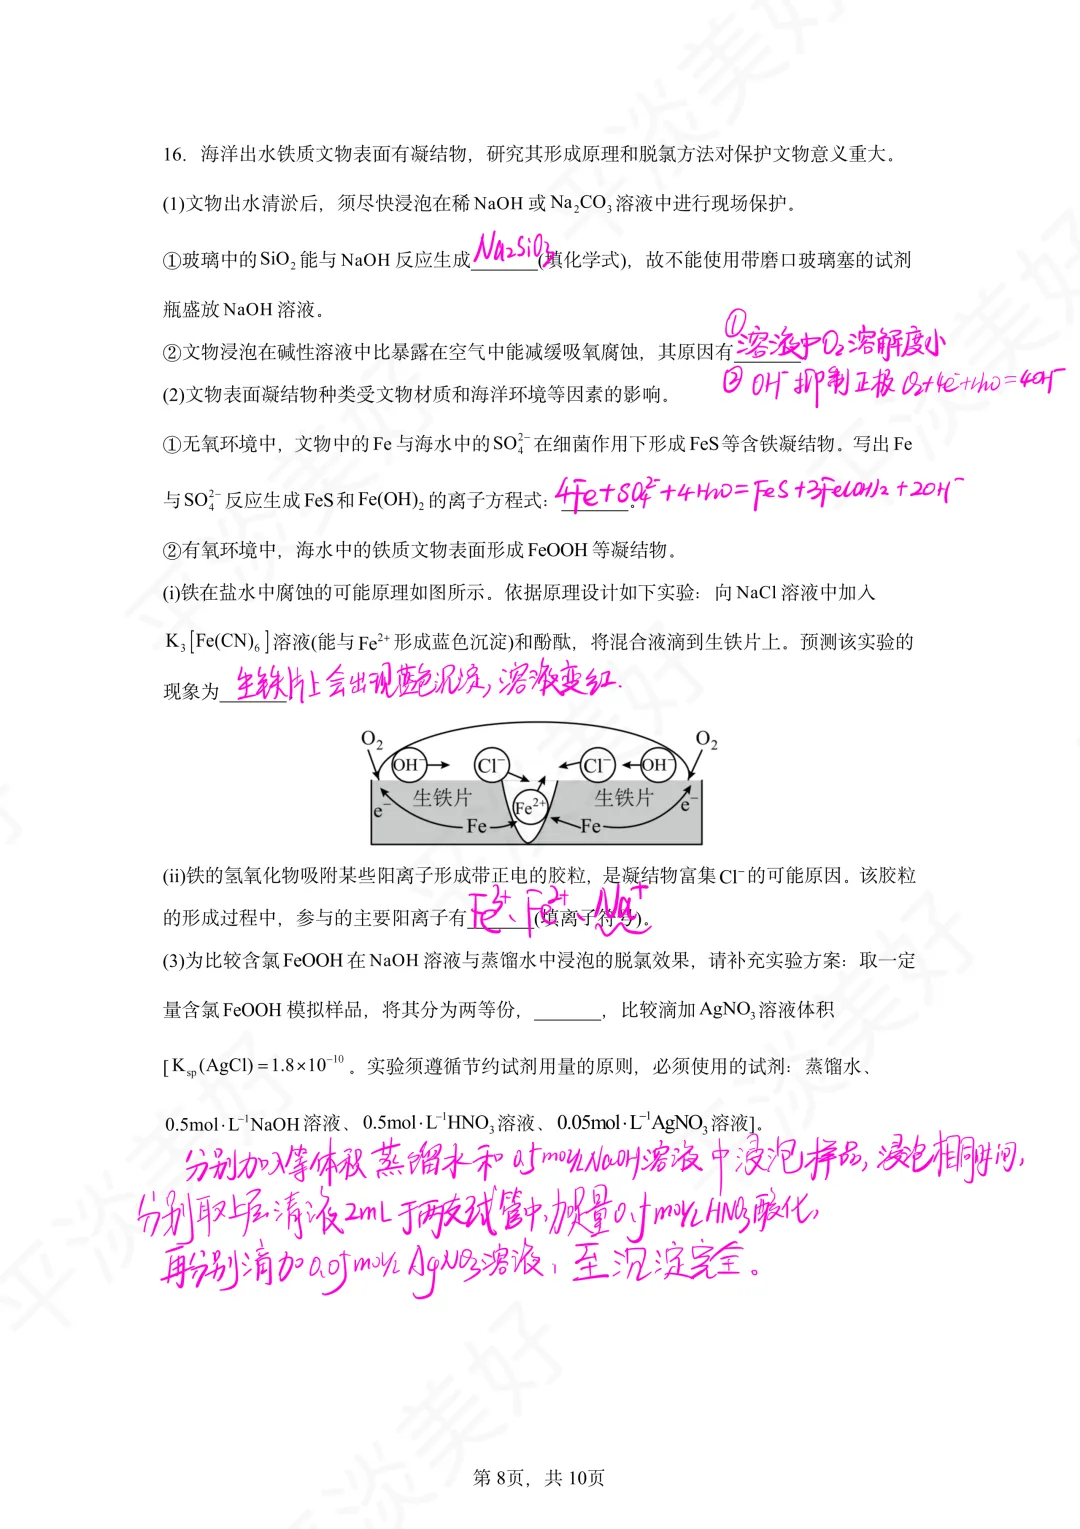 16．海洋出水铁质文物表面有凝结物，研究其形成原理和脱氯方法对保护文物意义重大。
(1)文物出水清淤后，须尽快浸泡在稀 NaOH 或 Na₂CO₃ 溶液中进行现场保护。
①玻璃中的 SiO₂ 能与 NaOH 反应生成 Na₂SiO₃ (填化学式)，故不能使用带磨口玻璃塞的试剂
瓶盛放 NaOH 溶液。
①溶液中O₂溶解度小
②文物浸泡在碱性溶液中比暴露在空气中能减缓吸氧腐蚀，其原因有______
② OH⁻抑制正极 O₂+4e⁻+H₂O=4OH⁻
(2)文物表面凝结物种类受文物材质和海洋环境等因素的影响。
①无氧环境中，文物中的 Fe 与海水中的 SO₄²⁻ 在细菌作用下形成 FeS 等含铁凝结物。写出 Fe
与 SO₄²⁻ 反应生成 FeS 和 Fe(OH)₂ 的离子方程式：4Fe+SO₄²⁻+4H₂O=FeS+3Fe(OH)₂+2OH⁻。
②有氧环境中，海水中的铁质文物表面形成 FeOOH 等凝结物。
(i)铁在盐水中腐蚀的可能原理如图所示。依据原理设计如下实验：向 NaCl 溶液中加入
K₃[Fe(CN)₆] 溶液(能与 Fe²⁺ 形成蓝色沉淀)和酚酞，将混合液滴到生铁片上。预测该实验的
现象为 生铁片上会出现蓝色沉淀，溶液变红.
O₂ O₂
OH⁻ Cl⁻ Cl⁻ OH⁻
e⁻ 生铁片 Fe²⁺ 生铁片 e⁻
Fe Fe
(ii)铁的氢氧化物吸附某些阳离子形成带正电的胶粒，是凝结物富集 Cl⁻ 的可能原因。该胶粒
的形成过程中，参与的主要阳离子有 Fe³⁺、Fe²⁺、Na⁺ (填离子符号)。
(3)为比较含氯 FeOOH 在 NaOH 溶液与蒸馏水中浸泡的脱氯效果，请补充实验方案：取一定
量含氯 FeOOH 模拟样品，将其分为两等份，______，比较滴加 AgNO₃ 溶液体积
[K_sp(AgCl)=1.8×10⁻¹⁰。实验须遵循节约试剂用量的原则，必须使用的试剂：蒸馏水、
0.5mol·L⁻¹NaOH 溶液、0.5mol·L⁻¹HNO₃ 溶液、0.05mol·L⁻¹AgNO₃ 溶液]。
分别加入等体积蒸馏水和 0.5mol/L NaOH溶液中浸泡样品，浸泡相同时间，
分别取上层清液2mL于两支试管中，加足量0.5mol/L HNO₃酸化，
再分别滴加0.05mol/L AgNO₃溶液，至沉淀完全。
第 8页，共 10页
平淡美好